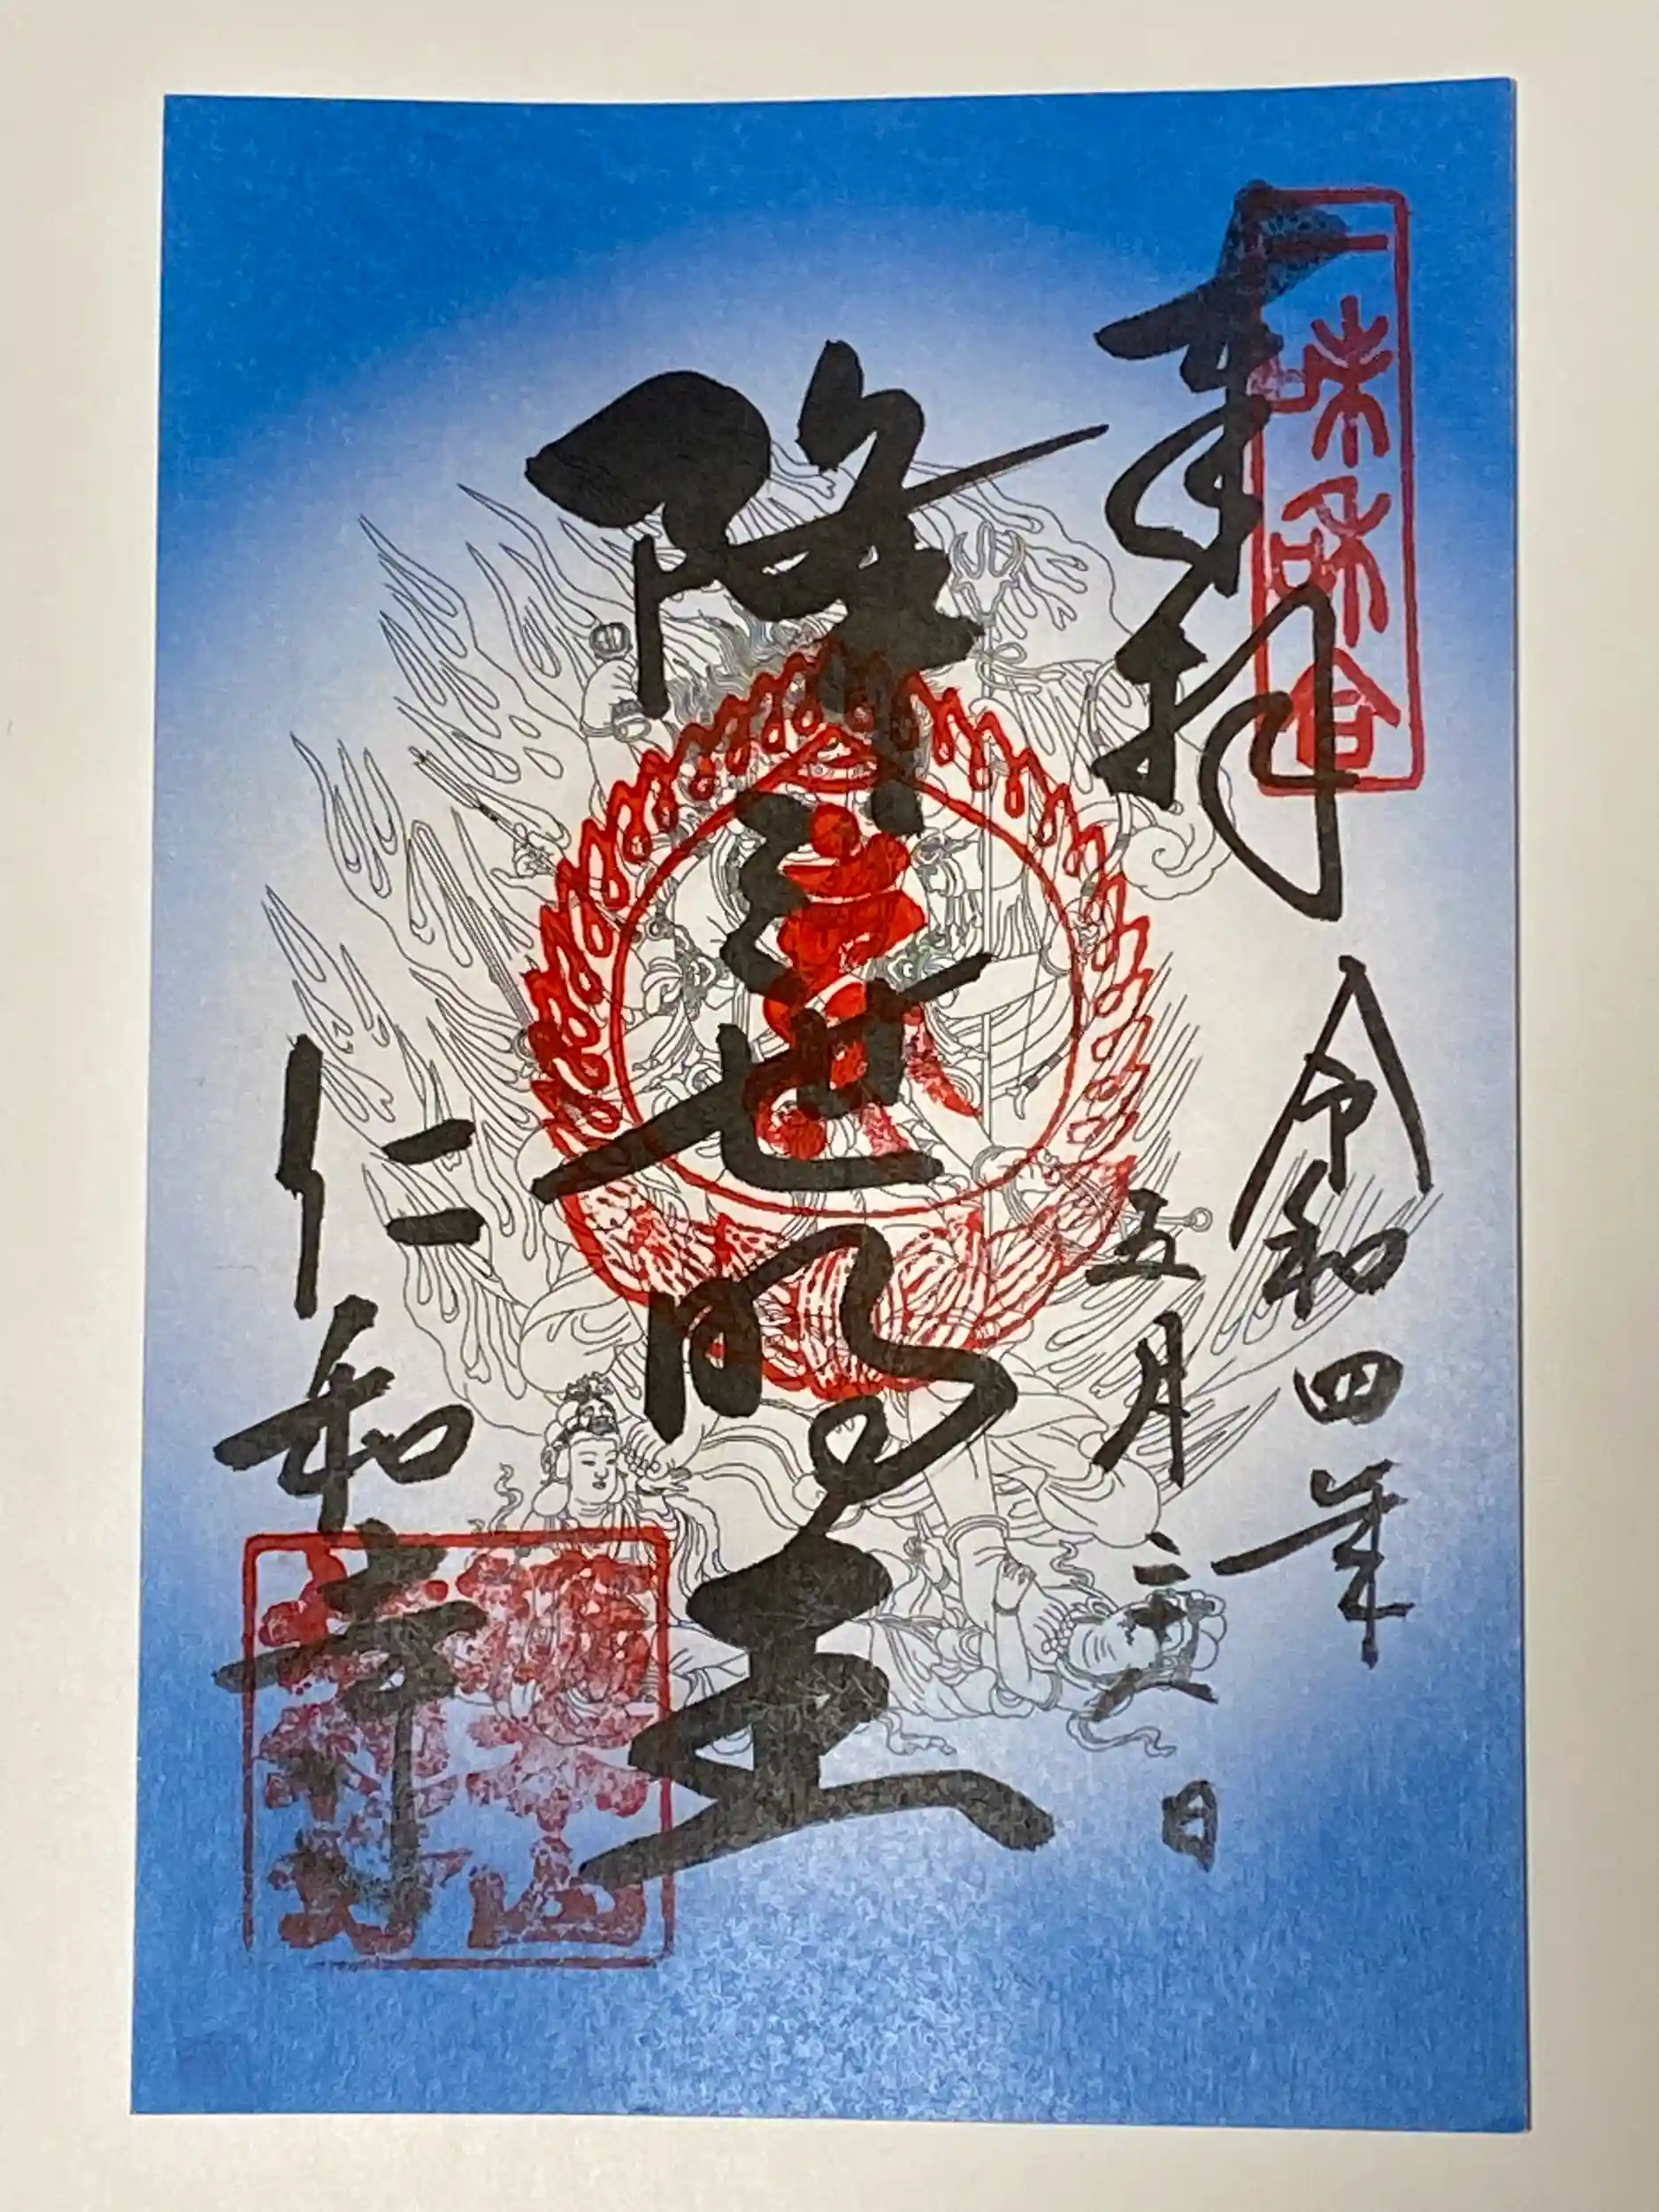 一味和合
奉拝
令和四年
五月二六日
降三世明王
仁和寺